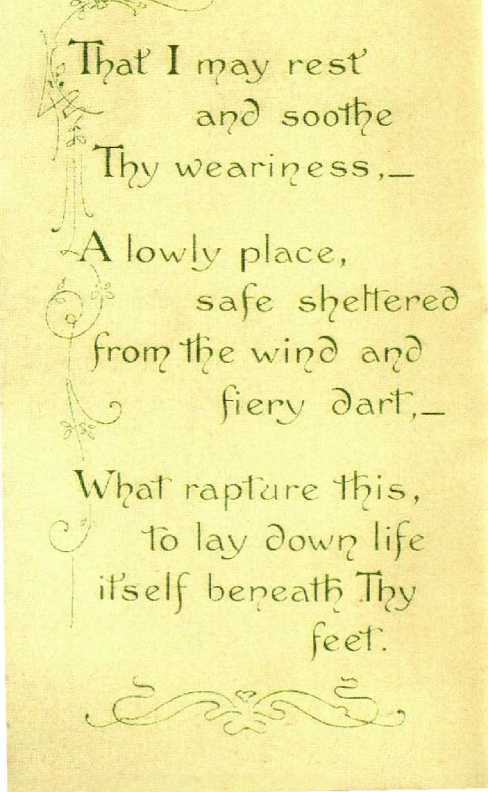 That I may rest
and soothe
Thy weariness,—
A lowly place,
safe sheltered
from the wind and
fiery dart,—
What rapture this,
to lay down life
itself beneath Thy
feet.